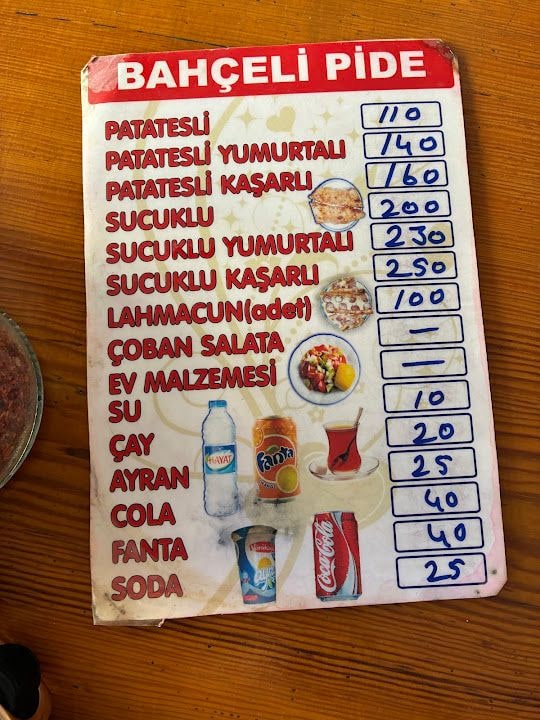 BAHÇELİ PİDE
PATATESLİ 110
PATATESLİ YUMURTALI 140
PATATESLİ KAŞARLI 160
SUCUKLU 200
SUCUKLU YUMURTALI 230
SUCUKLU KAŞARLI 250
LAHMACUN(adet) 100
ÇOBAN SALATA —
EV MALZEMESİ —
SU 10
ÇAY 20
AYRAN 25
COLA 40
FANTA 40
SODA 25
HAYAT
Fanta
Coca-Cola